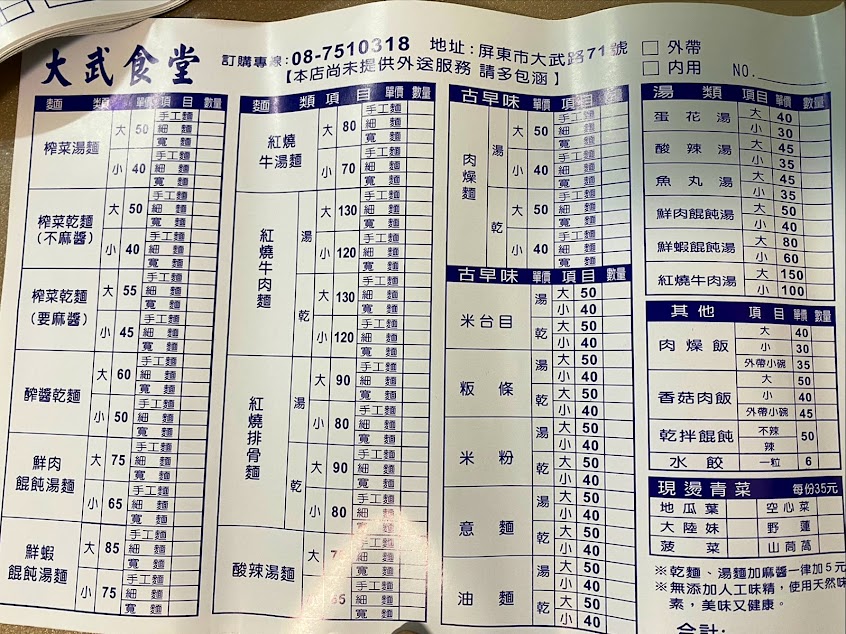 大武食堂 訂購專線:08-7510318 地址:屏東市大武路71號
【本店尚未提供外送服務 請多包涵】
□ 外帶
□ 内用 NO.
麵 類 單價 項目 數量
榨菜湯麵 大 50 手工麵 細麵 寬麵
小 40 手工麵 細麵 寬麵
榨菜乾麵(不麻醬) 大 50 手工麵 細麵 寬麵
小 40 手工麵 細麵 寬麵
榨菜乾麵(要麻醬) 大 55 手工麵 細麵 寬麵
小 45 手工麵 細麵 寬麵
酢醬乾麵 大 60 手工麵 細麵 寬麵
小 50 手工麵 細麵 寬麵
鮮肉餛飩湯麵 大 75 手工麵 細麵 寬麵
小 65 手工麵 細麵 寬麵
鮮蝦餛飩湯麵 大 85 手工麵 細麵 寬麵
小 75 手工麵 細麵 寬麵
麵 類 單價 項目 數量
紅燒牛湯麵 大 80 手工麵 細麵 寬麵
小 70 手工麵 細麵 寬麵
紅燒牛肉麵 湯 大 130 手工麵 細麵 寬麵
小 120 手工麵 細麵 寬麵
乾 大 130 手工麵 細麵 寬麵
小 120 手工麵 細麵 寬麵
紅燒排骨麵 湯 大 90 手工麵 細麵 寬麵
小 80 手工麵 細麵 寬麵
乾 大 90 手工麵 細麵 寬麵
小 80 手工麵 細麵 寬麵
酸辣湯麵 大 手工麵 細麵 寬麵
手工麵 細麵 寬麵
古早味 單價 項目 數量
肉燥麵 湯 大 50 手工麵 細麵 寬麵
小 40 手工麵 細麵 寬麵
乾 大 50 手工麵 細麵 寬麵
小 40 手工麵 細麵 寬麵
古早味 單價 項目 數量
米台目 湯 大 50
小 40
乾 大 50
小 40
粄條 湯 大 50
小 40
乾 大 50
小 40
米粉 湯 大 50
小 40
乾 大 50
小 40
意麵 湯 大 50
小 40
乾 大 50
小 40
油麵 湯 大 50
小 40
乾 大 50
小 40
湯類 項目 單價 數量
蛋花湯 大 40
小 30
酸辣湯 大 45
小 35
魚丸湯 大 45
小 35
鮮肉餛飩湯 大 50
小 40
鮮蝦餛飩湯 大 80
小 60
紅燒牛肉湯 大 150
小 100
其他 項目 單價 數量
肉燥飯 大 40
小 30
外帶小碗 35
香菇肉飯 大 50
小 40
外帶小碗 45
乾拌餛飩 不辣 辣 50
水餃 一粒 6
現燙青菜 每份35元
地瓜葉 空心菜
大陸妹 野蓮
菠菜 山茼萵
※乾麵、湯麵加麻醬一律加5元
※無添加人工味精,使用天然味
素,美味又健康。
合計: